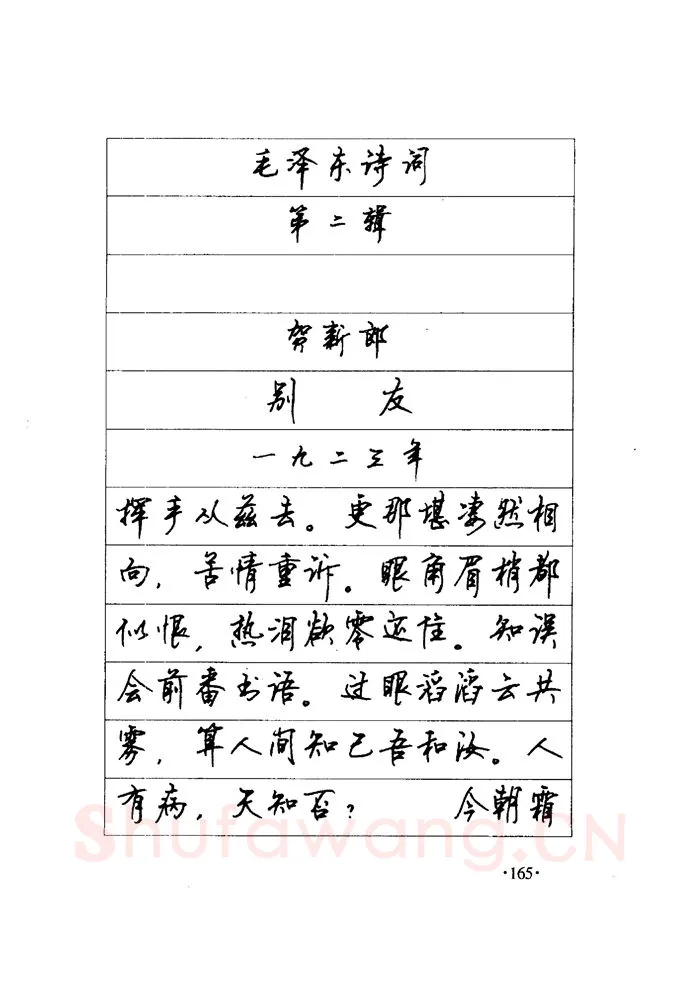 毛泽东诗词
第二辑
贺新郎
别 友
一九二三年
挥手从兹去。更那堪凄然相
向，苦情重诉。眼角眉梢都
似恨，热泪欲零还住。知误
会前番书语。过眼滔滔云共
雾，算人间知己吾和汝。人
有病，天知否？ 今朝霜
Shufawang.CN
·165·